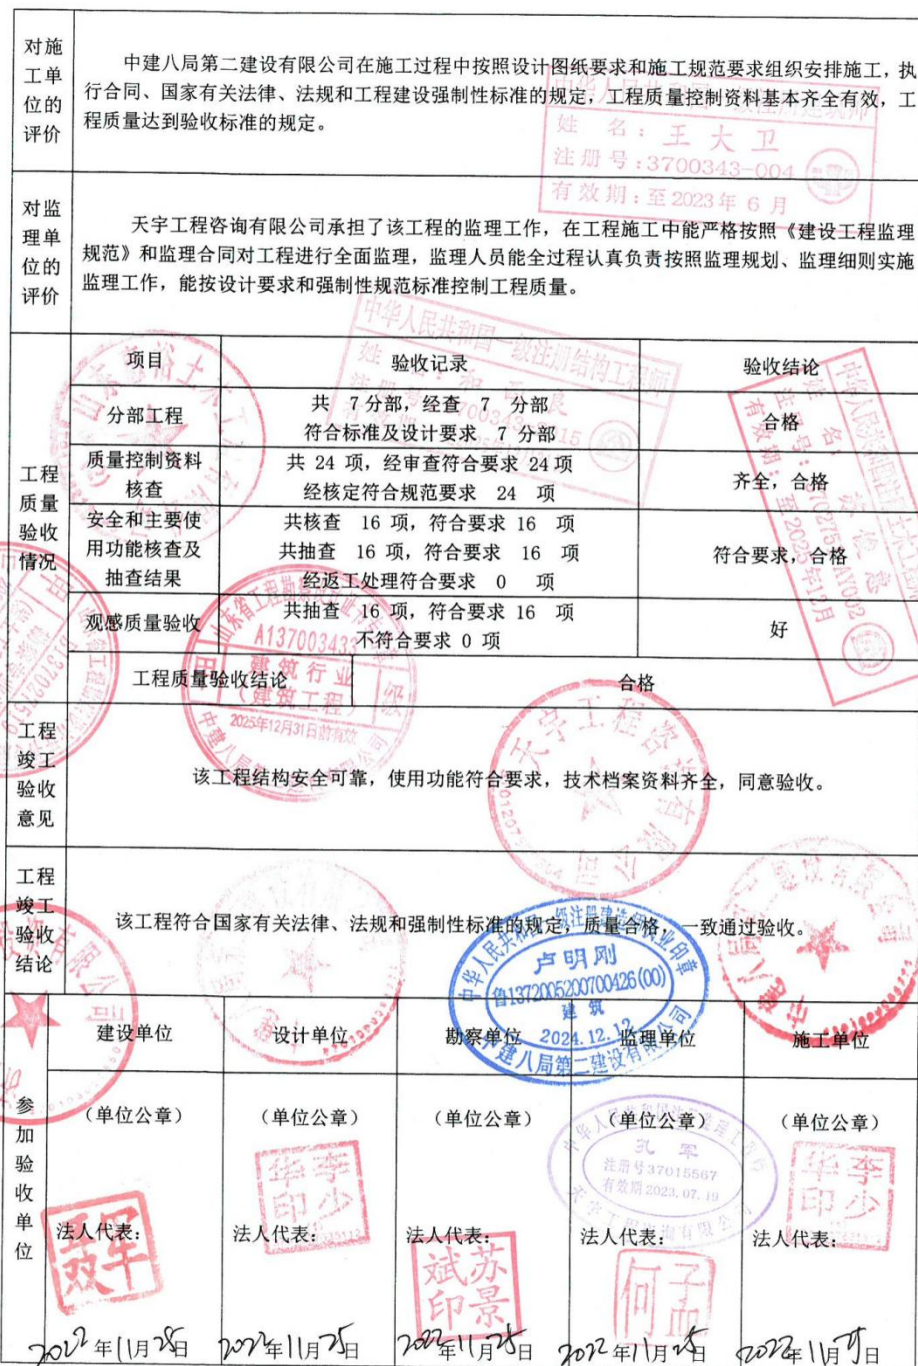 对施
工单
位的
评价
中建八局第二建设有限公司在施工过程中按照设计图纸要求和施工规范要求组织安排施工，执
行合同、国家有关法律、法规和工程建设强制性标准的规定，工程质量控制资料基本齐全有效，工
程质量达到验收标准的规定。
姓 名：王大卫
注册号：3700343-004
有效期：至2023年6月
对监
理单
位的
评价
天宇工程咨询有限公司承担了该工程的监理工作，在工程施工中能严格按照《建设工程监理
规范》和监理合同对工程进行全面监理，监理人员能全过程认真负责按照监理规划、监理细则实施
监理工作，能按设计要求和强制性规范标准控制工程质量。
中华人民共和国一级注册结构工程师
工程
质量
验收
情况
项目 验收记录 验收结论
分部工程
共 7分部，经查 7 分部
符合标准及设计要求 7 分部
合格
质量控制资料
核查
共 24 项，经审查符合要求 24 项
经核定符合规范要求 24 项
齐全，合格
安全和主要使
用功能核查及
抽查结果
共核查 16 项，符合要求 16 项
共抽查 16 项，符合要求 16 项
经返工处理符合要求 0 项
符合要求，合格
有效期：至2025年12月
观感质量验收
共抽查 16 项，符合要求 16 项
不符合要求 0 项
好
A137003433
建筑行业
（建筑工程）
2025年12月31日前有效
工程质量验收结论 合格
工程
竣工
验收
意见
该工程结构安全可靠，使用功能符合要求，技术档案资料齐全，同意验收。
天宇工程咨询有限公司
工程
竣工
验收
结论
该工程符合国家有关法律、法规和强制性标准的规定，质量合格，一致通过验收。
中华人民共和国一级注册建造师执业印章
卢明刚
鲁1372005200700426(00)
建筑
2024.12.12
中建八局第二建设有限公司
参
加
验
收
单
位
建设单位 设计单位 勘察单位 监理单位 施工单位
（单位公章） （单位公章） （单位公章） （单位公章） （单位公章）
孔军
注册号37015567
有效期2023.07.19
天宇工程咨询有限公司
法人代表： 法人代表： 法人代表： 法人代表： 法人代表：
李少华印
苏景斌印
李少华印
2022年11月25日 2022年11月25日 2022年11月25日 2022年11月25日 2022年11月25日